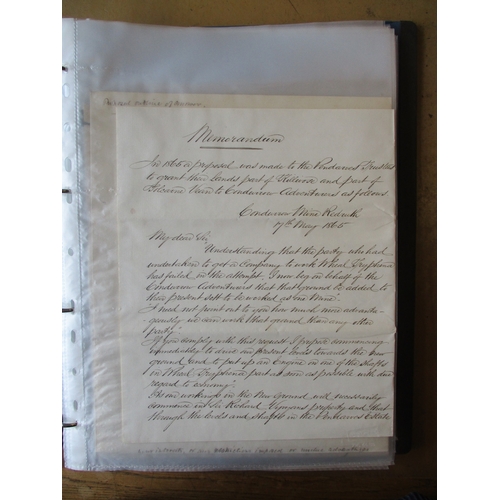 Memorandum
In 1865 a proposal was made to the Pendarves Trustees
to grant their Lands part of and part of
to Condurrow Adventurers as follows
Condurrow Mine Redruth
17th May 1865
My dear Sir
Understanding that the party who had
undertaken to get a company to work Wheal Tryphena
has failed in the attempt. I now beg on behalf of the
Condurrow Adventurers that that ground be added to
their present sett to be worked as one Mine.
I need not point out to you how much more advanta-
geously we can work that ground than any other
party.
If you comply with this request I propose commencing
immediately to drive our present Levels towards the new
ground, and to put up an Engine on one of the Shafts
in Wheal Tryphena part as soon as possible with due
regard to economy.
the new Ground will necessarily
commence in Sir Richard Vyvyans property and that
through the lodes and Shafts in the Pendarves Estate